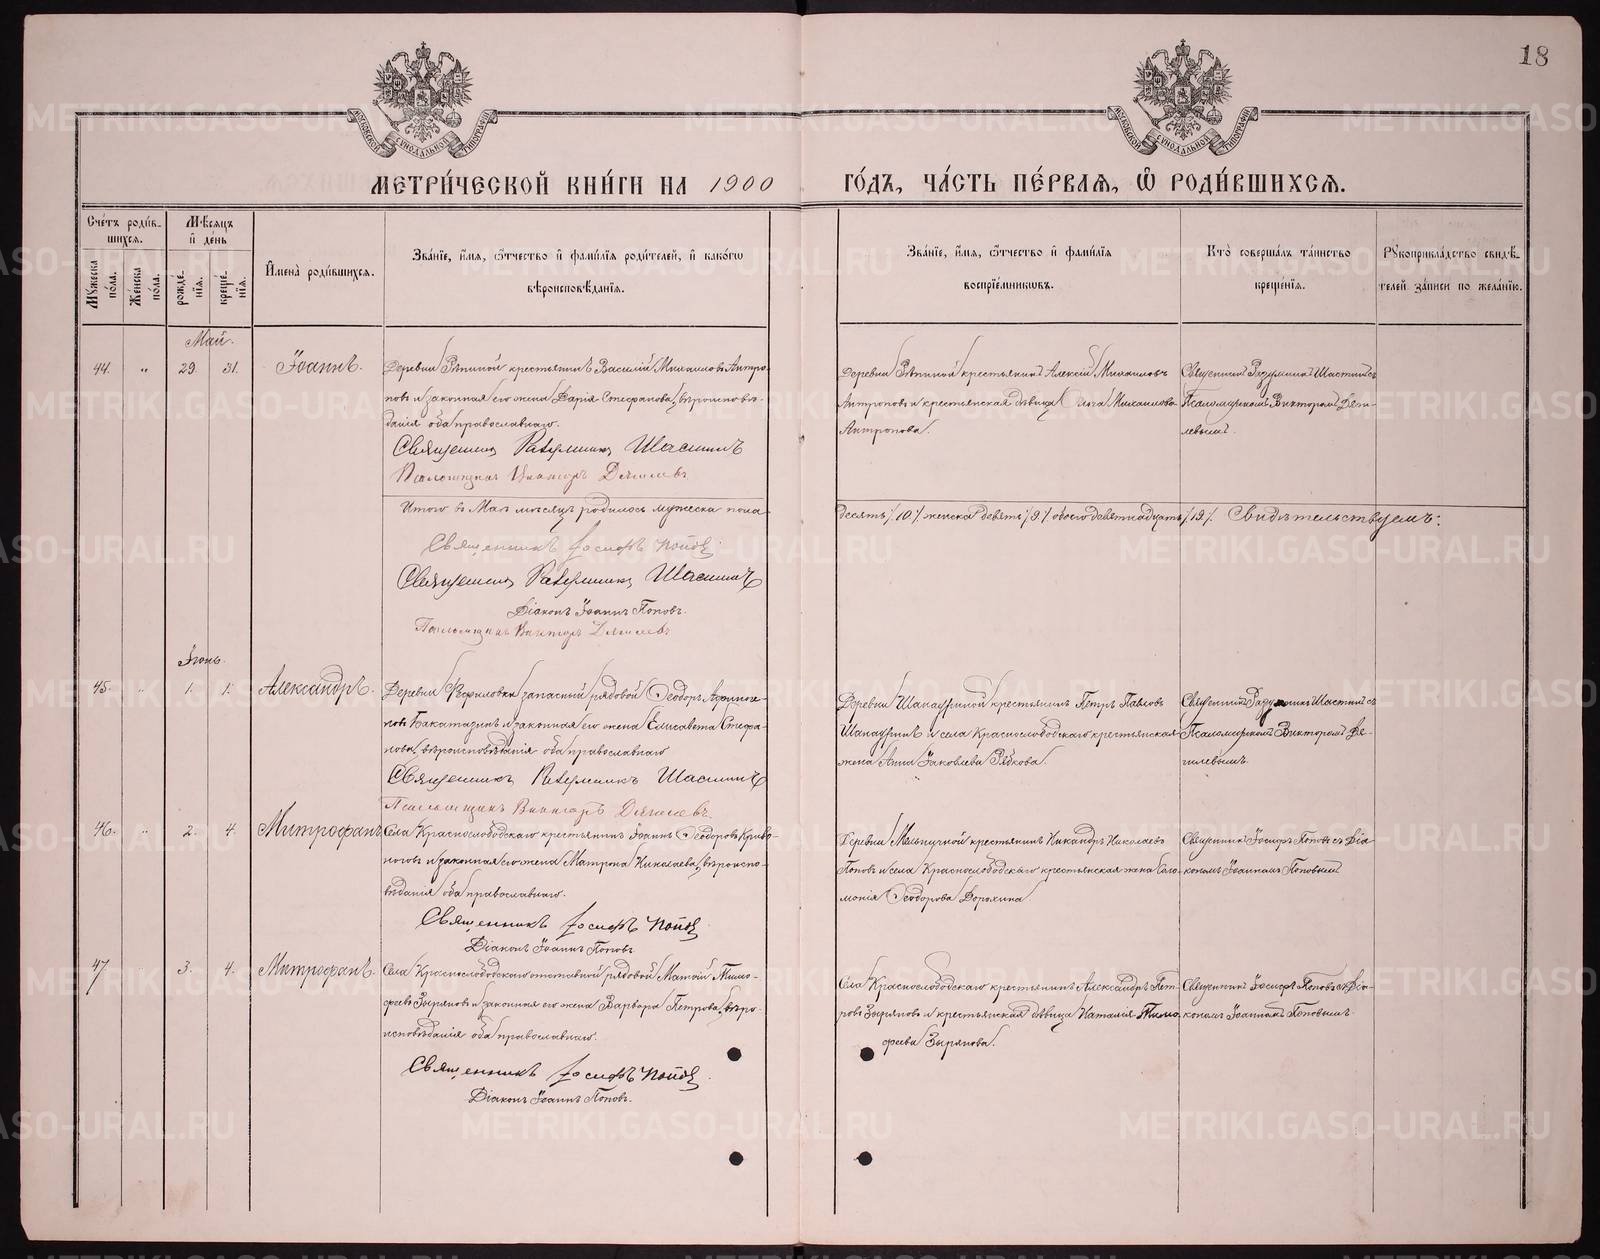 18
МЕТРИ́ЧЕСКОЙ КНИ́ГИ НА 1900 ГО́ДЪ, ЧА́СТЬ ПЕ́РВАЯ, Ѿ РОДИ́ВШИХСЯ.
Сче́тъ роди́в-
шихся.
Мѣ́сяцъ
и҆ де́нь
Му́жеска
по́ла.
Же́нска
по́ла.
рожде́-
нїя.
креще́-
нїя.
И҆мена̀ роди́вшихся.
Зва́нїе, и҆́мя, ѻ҆́тчество и҆ фами́лїя роди́телей, и҆ како́гѡ
вѣроисповѣ́данїя.
Зва́нїе, и҆́мя, ѻ҆́тчество и҆ фами́лїя
воспрїе́мниковъ.
Кто̀ соверша́лъ та́инство
креще́нїя.
Рукоприкла́дство свидѣ́-
телей за́писи по жела́нїю.
Май.
44. " 29. 31. Іоаннъ.
Деревни Рѣпиной крестьянинъ Василій Михаиловъ Антро-
повъ и законная его жена Дарія Стефанова, вѣроисповѣ-
данія оба православнаго.
Священникъ Разумникъ Шастинъ
Псаломщикъ Викторъ Дягилевъ
Деревни Рѣпиной крестьянинъ Алексій Михаиловъ
Антроповъ и крестьянская дѣвица Михаилова
Антропова.
Священникъ Разумникъ Шастинъ съ
Псаломщикомъ Викторомъ Дяги-
левымъ.
Итого въ Маѣ мѣсяцѣ родилось мужеска пола десять /10/ женска девять /9/ обоего девятнадцать /19/. Свидѣтельствуемъ:
Священникъ Іосифъ Поповъ
Священникъ Разумникъ Шастинъ
Діаконъ Іоаннъ Поповъ.
Псаломщикъ Викторъ Дягилевъ
Іюнь.
45. " 1. 1. Александръ.
Деревни запасный рядовой Ѳеодоръ
повъ и законная его жена Елисавета Стефа-
нова, вѣроисповѣданія оба православнаго
Священникъ Разумникъ Шастинъ
Псаломщикъ Викторъ Дягилевъ.
Деревни Шапауриной крестьянинъ Петръ Павловъ
Шапауринъ и села Краснослободскаго крестьянская
жена Анна Іаковлева Рябкова.
Священникъ Разумникъ Шастинъ съ
Псаломщикомъ Викторомъ Дя-
гилевымъ.
46. " 2. 4. Митрофанъ
Села Краснослободскаго крестьянинъ Іоаннъ Ѳеодоровъ Криво-
ноговъ и законная его жена Матрона Николаева, вѣроиспо-
вѣданія оба православнаго.
Священникъ Іосифъ Поповъ
Діаконъ Іоаннъ Поповъ
Деревни Мельничной крестьянинъ Никандръ Николаевъ
Поповъ и села Краснослободскаго крестьянская жена Соло-
монія Ѳеодорова Дорохина.
Священникъ Іосифъ Поповъ съ Діа-
кономъ Іоанномъ Поповымъ
47. 3. 4. Митрофанъ.
Села Краснослободскаго отставной рядовой Матѳій Тимо-
феевъ Зыряновъ и законная его жена Варвара Петрова, вѣро-
исповѣданія оба православнаго.
Священникъ Іосифъ Поповъ
Діаконъ Іоаннъ Поповъ.
Села Краснослободскаго крестьянинъ Александръ Пет-
ровъ Зыряновъ и крестьянская дѣвица Наталія Тимо-
феева Зырянова.
Священникъ Іосифъ Поповъ съ Діа-
кономъ Іоанномъ Поповымъ
METRIKI.GASO-URAL.RU